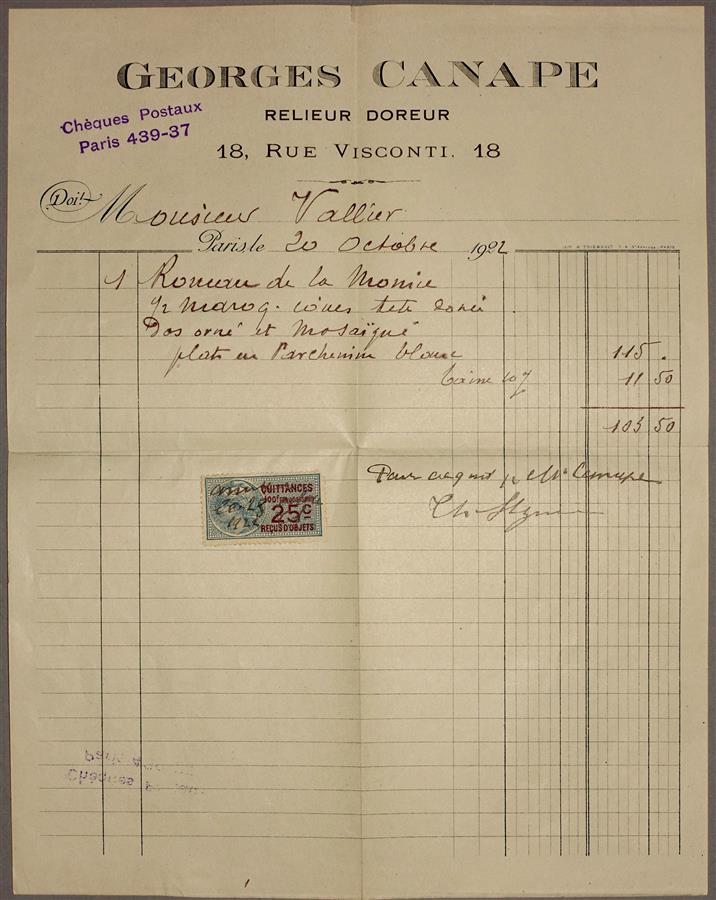 GEORGES CANAPE
RELIEUR DOREUR
Chèques Postaux
Paris 439-37
18, RUE VISCONTI, 18
Doit Monsieur Vallier
Paris, le 20 Octobre 1922
1 Roman de la Momie
1/2 maroq. coines tete dorée
Dos orné et Mosaïqué
plats en Parchemin blanc 115 .
10% 11 50
103 50
Pour acquit Canape
QUITTANCES
25c
REÇUS D'OBJETS
1922
Chèques
Paris